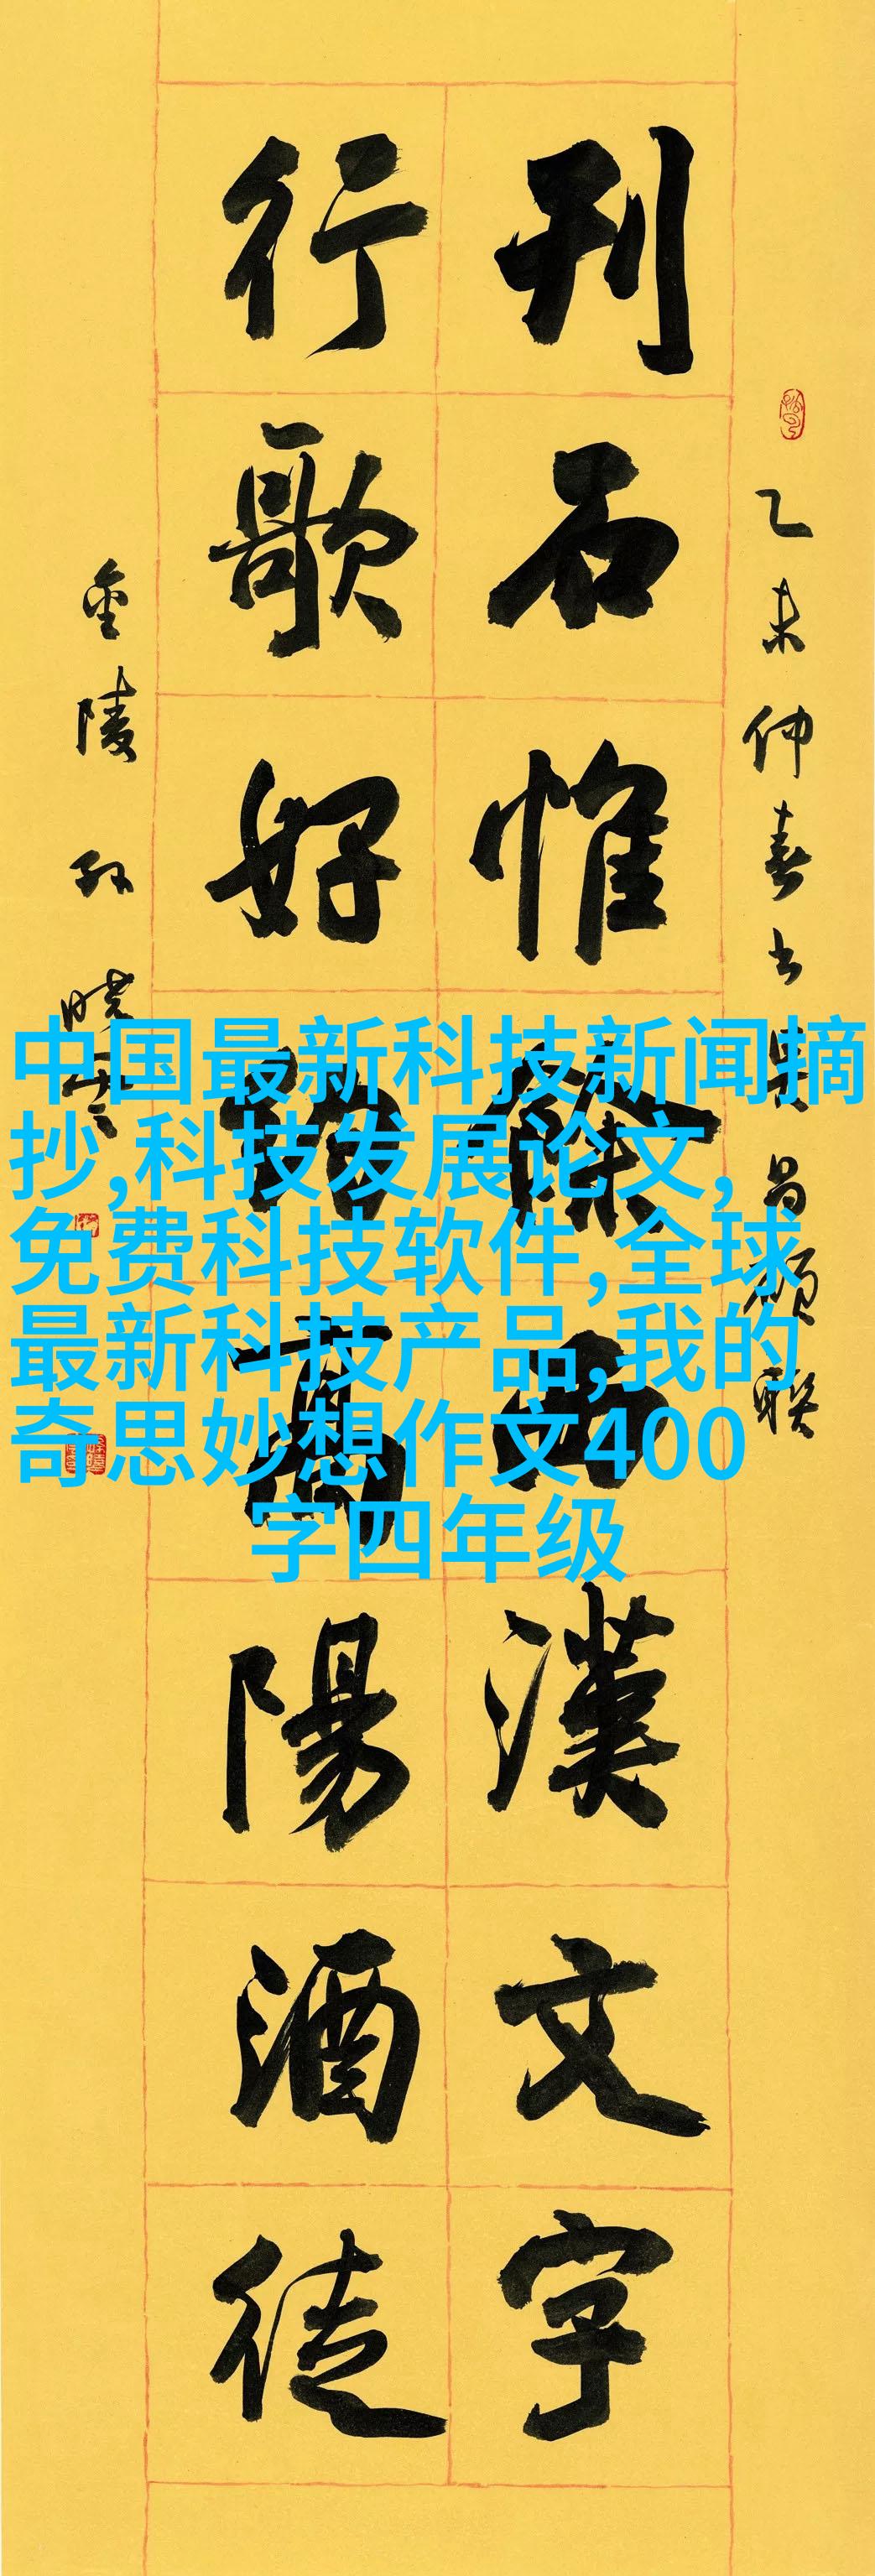 乙未仲春书吴昌碩联
刊石惟餘西漢文字
行歌好約高陽酒徒
金陵孙晓雲
中国最新科技新闻摘
抄,科技发展论文,
免费科技软件,全球
最新科技产品,我的
奇思妙想作文400
字四年级